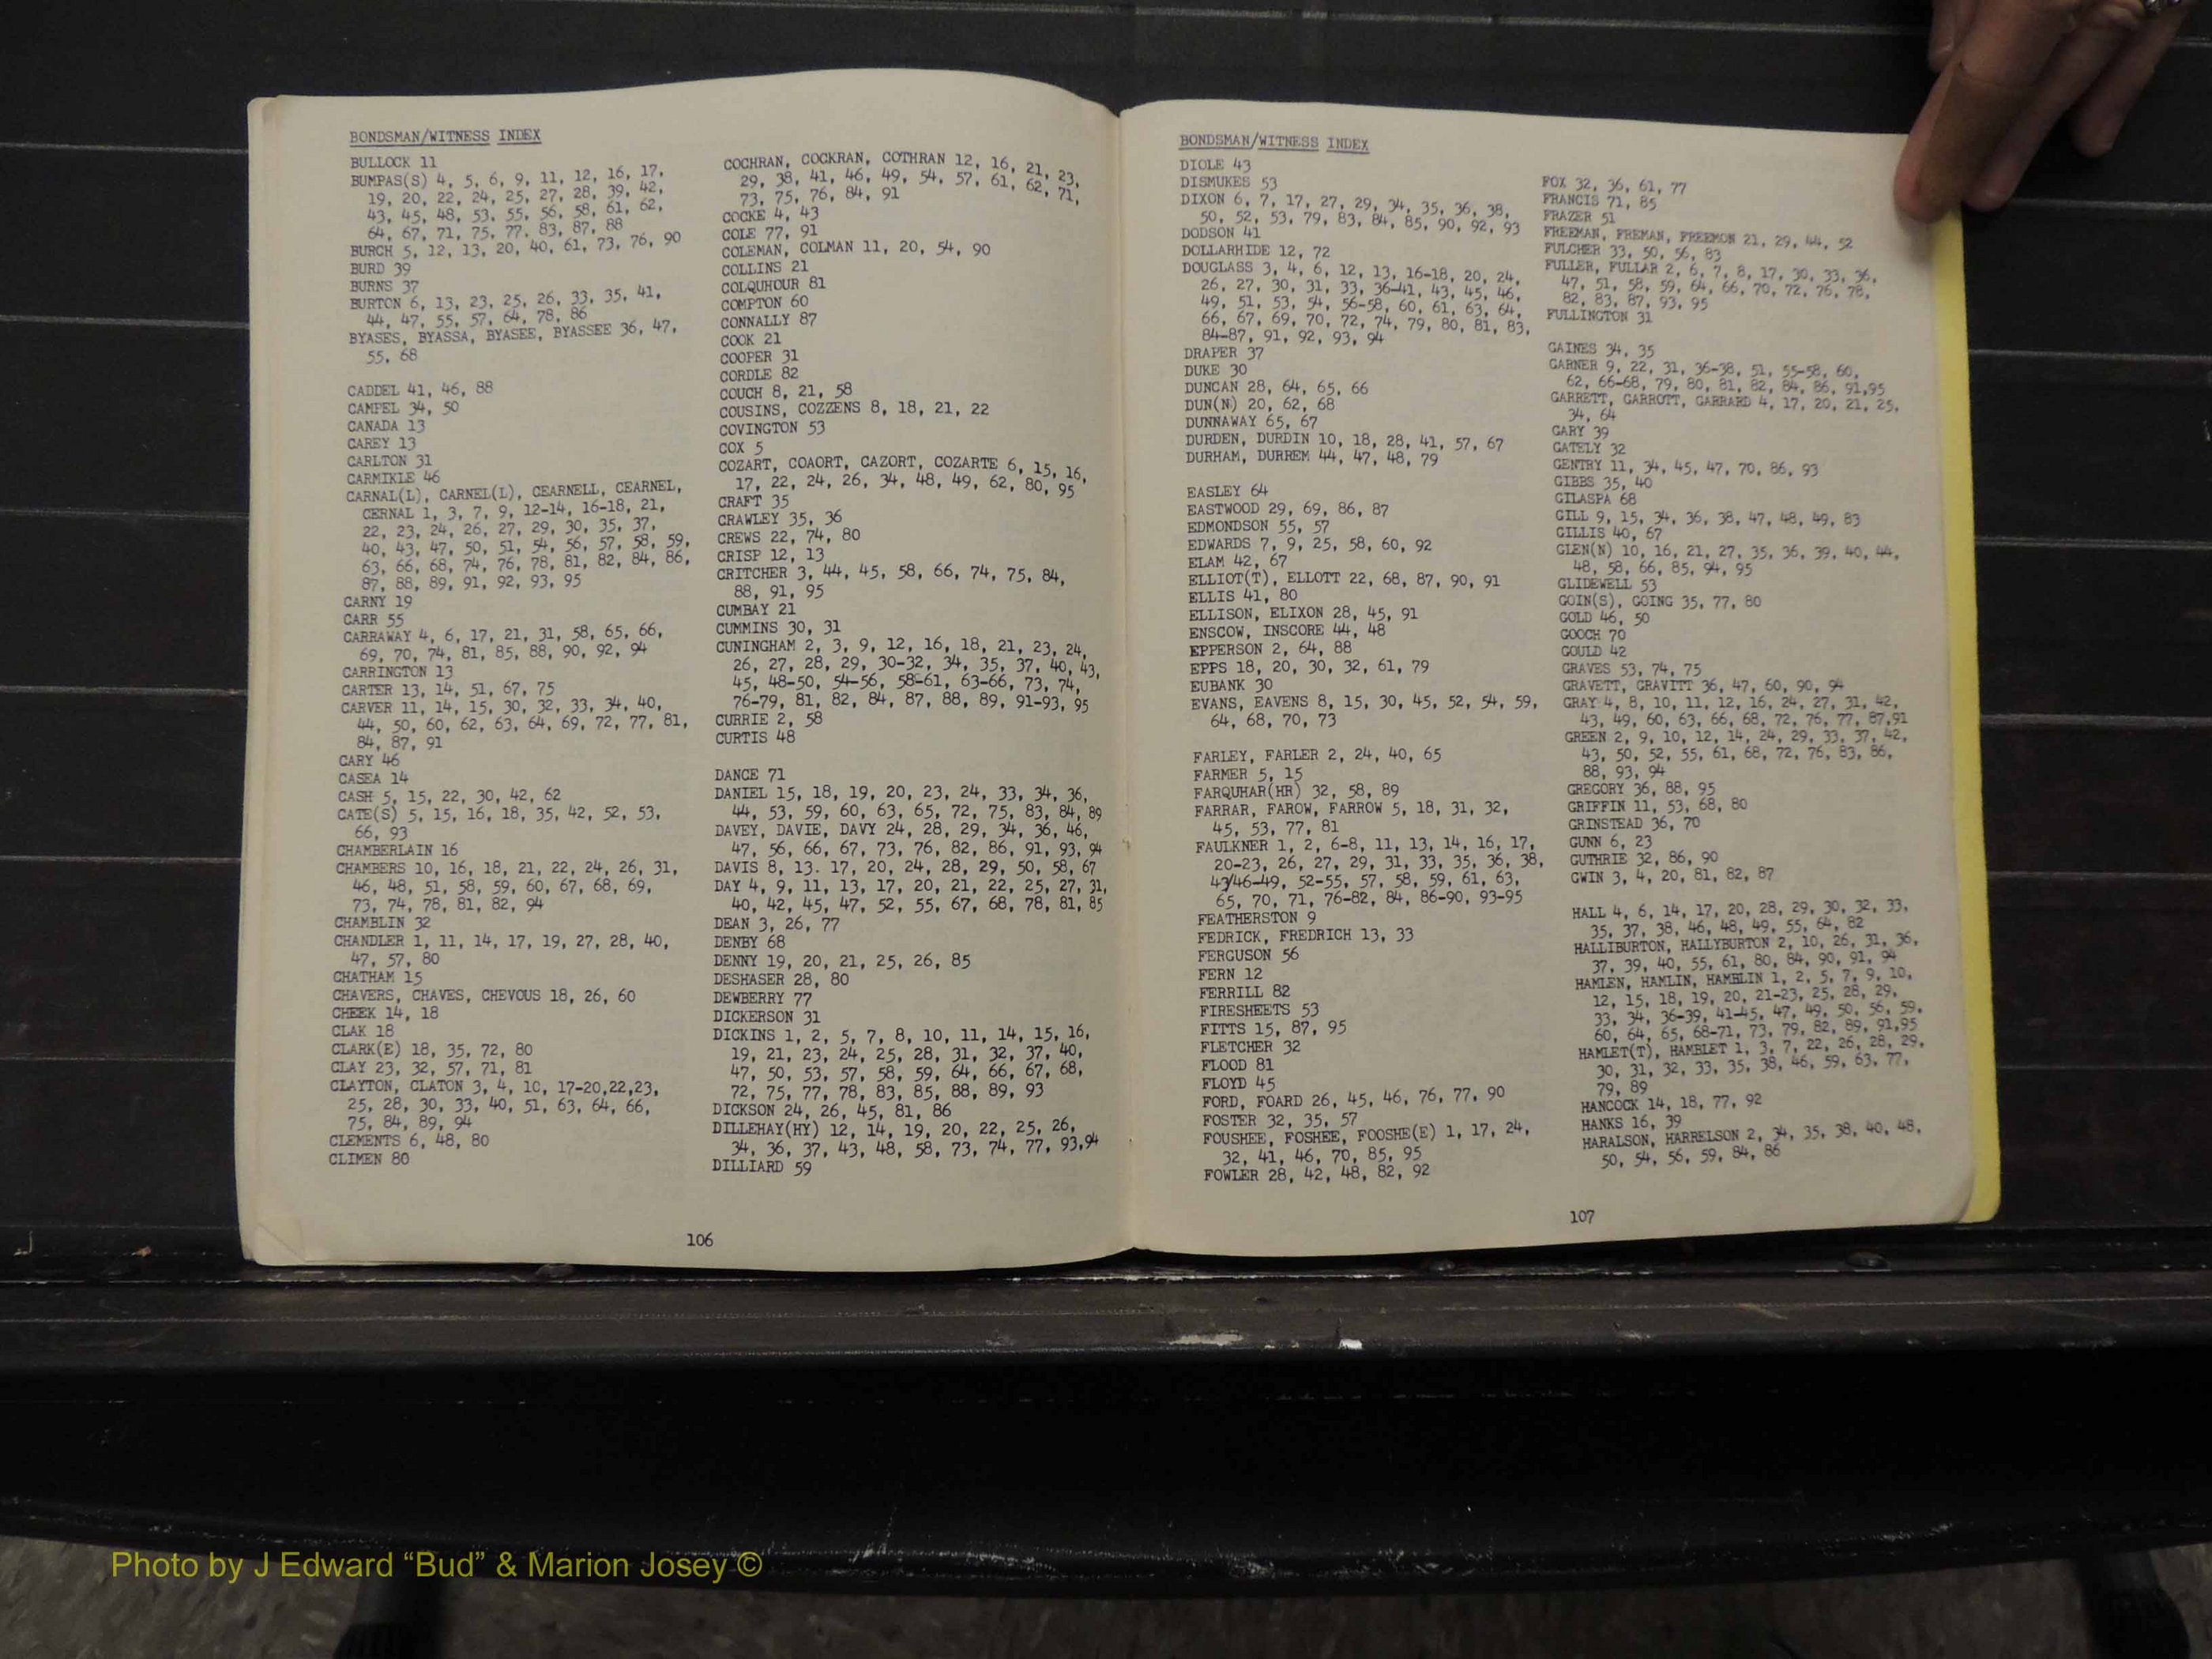 BONDSMAN/WITNESS INDEX
BULLOCK 11
BUMPAS(S) 4, 5, 6, 9, 11, 12, 16, 17,
19, 20, 22, 24, 25, 27, 28, 39, 42,
43, 45, 48, 53, 55, 56, 58, 61, 62,
64, 67, 71, 75, 77, 83, 87, 88
BURCH 5, 12, 13, 20, 40, 61, 73, 76, 90
BURD 39
BURNS 37
BURTON 6, 13, 23, 25, 26, 33, 35, 41,
44, 47, 55, 57, 64, 78, 86
BYASES, BYASSA, BYASEE, BYASSEE 36, 47,
55, 68
CADDEL 41, 46, 88
CAMPEL 34, 50
CANADA 13
CAREY 13
CARLTON 31
CARMIKLE 46
CARNAL(L), CARNEL(L), CEARNELL, CEARNEL,
CERNAL 1, 3, 7, 9, 12-14, 16-18, 21,
22, 23, 24, 26, 27, 29, 30, 35, 37,
40, 43, 47, 50, 51, 54, 56, 57, 58, 59,
63, 66, 68, 74, 76, 78, 81, 82, 84, 86,
87, 88, 89, 91, 92, 93, 95
CARNY 19
CARR 55
CARRAWAY 4, 6, 17, 21, 31, 58, 65, 66,
69, 70, 74, 81, 85, 88, 90, 92, 94
CARRINGTON 13
CARTER 13, 14, 51, 67, 75
CARVER 11, 14, 15, 30, 32, 33, 34, 40,
44, 50, 60, 62, 63, 64, 69, 72, 77, 81,
84, 87, 91
CARY 46
CASEA 14
CASH 5, 15, 22, 30, 42, 62
CATE(S) 5, 15, 16, 18, 35, 42, 52, 53,
66, 93
CHAMBERLAIN 16
CHAMBERS 10, 16, 18, 21, 22, 24, 26, 31,
46, 48, 51, 58, 59, 60, 67, 68, 69,
73, 74, 78, 81, 82, 94
CHAMBLIN 32
CHANDLER 1, 11, 14, 17, 19, 27, 28, 40,
47, 57, 80
CHATHAM 15
CHAVERS, CHAVES, CHEVOUS 18, 26, 60
CHEEK 14, 18
CLAK 18
CLARK(E) 18, 35, 72, 80
CLAY 23, 32, 57, 71, 81
CLAYTON, CLATON 3, 4, 10, 17-20,22,23,
25, 28, 30, 33, 40, 51, 63, 64, 66,
75, 84, 89, 94
CLEMENTS 6, 48, 80
CLIMEN 80
COCHRAN, COCKRAN, COTHRAN 12, 16, 21, 23,
29, 38, 41, 46, 49, 54, 57, 61, 62, 71,
73, 75, 76, 84, 91
COCKE 4, 43
COLE 77, 91
COLEMAN, COLMAN 11, 20, 54, 90
COLLINS 21
COLQUHOUR 81
COMPTON 60
CONNALLY 87
COOK 21
COOPER 31
CORDLE 82
COUCH 8, 21, 58
COUSINS, COZZENS 8, 18, 21, 22
COVINGTON 53
COX 5
COZART, COAORT, CAZORT, COZARTE 6, 15, 16,
17, 22, 24, 26, 34, 48, 49, 62, 80, 95
CRAFT 35
CRAWLEY 35, 36
CREWS 22, 74, 80
CRISP 12, 13
CRITCHER 3, 44, 45, 58, 66, 74, 75, 84,
88, 91, 95
CUMBAY 21
CUMMINS 30, 31
CUNINGHAM 2, 3, 9, 12, 16, 18, 21, 23, 24,
26, 27, 28, 29, 30-32, 34, 35, 37, 40, 43,
45, 48-50, 54-56, 58-61, 63-66, 73, 74,
76-79, 81, 82, 84, 87, 88, 89, 91-93, 95
CURRIE 2, 58
CURTIS 48
DANCE 71
DANIEL 15, 18, 19, 20, 23, 24, 33, 34, 36,
44, 53, 59, 60, 63, 65, 72, 75, 83, 84, 89
DAVEY, DAVIE, DAVY 24, 28, 29, 34, 36, 46,
47, 56, 66, 67, 73, 76, 82, 86, 91, 93, 94
DAVIS 8, 13. 17, 20, 24, 28, 29, 50, 58, 67
DAY 4, 9, 11, 13, 17, 20, 21, 22, 25, 27, 31,
40, 42, 45, 47, 52, 55, 67, 68, 78, 81, 85
DEAN 3, 26, 77
DENBY 68
DENNY 19, 20, 21, 25, 26, 85
DESHASER 28, 80
DEWBERRY 77
DICKERSON 31
DICKINS 1, 2, 5, 7, 8, 10, 11, 14, 15, 16,
19, 21, 23, 24, 25, 28, 31, 32, 37, 40,
47, 50, 53, 57, 58, 59, 64, 66, 67, 68,
72, 75, 77, 78, 83, 85, 88, 89, 93
DICKSON 24, 26, 45, 81, 86
DILLEHAY(HY) 12, 14, 19, 20, 22, 25, 26,
34, 36, 37, 43, 48, 58, 73, 74, 77, 93,94
DILLIARD 59
106
BONDSMAN/WITNESS INDEX
DIOLE 43
DISMUKES 53
DIXON 6, 7, 17, 27, 29, 34, 35, 36, 38,
50, 52, 53, 79, 83, 84, 85, 90, 92, 93
DODSON 41
DOLLARHIDE 12, 72
DOUGLASS 3, 4, 6, 12, 13, 16-18, 20, 24,
26, 27, 30, 31, 33, 36-41, 43, 45, 46,
49, 51, 53, 54, 56-58, 60, 61, 63, 64,
66, 67, 69, 70, 72, 74, 79, 80, 81, 83,
84-87, 91, 92, 93, 94
DRAPER 37
DUKE 30
DUNCAN 28, 64, 65, 66
DUN(N) 20, 62, 68
DUNNAWAY 65, 67
DURDEN, DURDIN 10, 18, 28, 41, 57, 67
DURHAM, DURREM 44, 47, 48, 79
EASLEY 64
EASTWOOD 29, 69, 86, 87
EDMONDSON 55, 57
EDWARDS 7, 9, 25, 58, 60, 92
ELAM 42, 67
ELLIOT(T), ELLOTT 22, 68, 87, 90, 91
ELLIS 41, 80
ELLISON, ELIXON 28, 45, 91
ENSCOW, INSCORE 44, 48
EPPERSON 2, 64, 88
EPPS 18, 20, 30, 32, 61, 79
EUBANK 30
EVANS, EAVENS 8, 15, 30, 45, 52, 54, 59,
64, 68, 70, 73
FARLEY, FARLER 2, 24, 40, 65
FARMER 5, 15
FARQUHAR(HR) 32, 58, 89
FARRAR, FAROW, FARROW 5, 18, 31, 32,
45, 53, 77, 81
FAULKNER 1, 2, 6-8, 11, 13, 14, 16, 17,
20-23, 26, 27, 29, 31, 33, 35, 36, 38,
43/46-49, 52-55, 57, 58, 59, 61, 63,
65, 70, 71, 76-82, 84, 86-90, 93-95
FEATHERSTON 9
FEDRICK, FREDRICH 13, 33
FERGUSON 56
FERN 12
FERRILL 82
FIRESHEETS 53
FITTS 15, 87, 95
FLETCHER 32
FLOOD 81
FLOYD 45
FORD, FOARD 26, 45, 46, 76, 77, 90
FOSTER 32, 35, 57
FOUSHEE, FOSHEE, FOOSHE(E) 1, 17, 24,
32, 41, 46, 70, 85, 95
FOWLER 28, 42, 48, 82, 92
FOX 32, 36, 61, 77
FRANCIS 71, 85
FRAZER 51
FREEMAN, FREMAN, FREEMON 21, 29, 44, 52
FULCHER 33, 50, 56, 83
FULLER, FULLAR 2, 6, 7, 8, 17, 30, 33, 36,
47, 51, 58, 59, 64, 66, 70, 72, 76, 78,
82, 83, 87, 93, 95
FULLINGTON 31
GAINES 34, 35
GARNER 9, 22, 31, 36-38, 51, 55-58, 60,
62, 66-68, 79, 80, 81, 82, 84, 86, 91,95
GARRETT, GARROTT, GARRARD 4, 17, 20, 21, 25,
34, 64
GARY 39
GATELY 32
GENTRY 11, 34, 45, 47, 70, 86, 93
GIBBS 35, 40
GILASPA 68
GILL 9, 15, 34, 36, 38, 47, 48, 49, 83
GILLIS 40, 67
GLEN(N) 10, 16, 21, 27, 35, 36, 39, 40, 44,
48, 58, 66, 85, 94, 95
GLIDEWELL 53
GOIN(S), GOING 35, 77, 80
GOLD 46, 50
GOOCH 70
GOULD 42
GRAVES 53, 74, 75
GRAVETT, GRAVITT 36, 47, 60, 90, 94
GRAY 4, 8, 10, 11, 12, 16, 24, 27, 31, 42,
43, 49, 60, 63, 66, 68, 72, 76, 77, 87,91
GREEN 2, 9, 10, 12, 14, 24, 29, 33, 37, 42,
43, 50, 52, 55, 61, 68, 72, 76, 83, 86,
88, 93, 94
GREGORY 36, 88, 95
GRIFFIN 11, 53, 68, 80
GRINSTEAD 36, 70
GUNN 6, 23
GUTHRIE 32, 86, 90
GWIN 3, 4, 20, 81, 82, 87
HALL 4, 6, 14, 17, 20, 28, 29, 30, 32, 33,
35, 37, 38, 46, 48, 49, 55, 64, 82
HALLIBURTON, HALLYBURTON 2, 10, 26, 31, 36,
37, 39, 40, 55, 61, 80, 84, 90, 91, 94
HAMLEN, HAMLIN, HAMBLIN 1, 2, 5, 7, 9, 10,
12, 15, 18, 19, 20, 21-23, 25, 28, 29,
33, 34, 36-39, 41-45, 47, 49, 50, 56, 59,
60, 64, 65, 68-71, 73, 79, 82, 89, 91,95
HAMLET(T), HAMBLET 1, 3, 7, 22, 26, 28, 29,
30, 31, 32, 33, 35, 38, 46, 59, 63, 77,
79, 89
HANCOCK 14, 18, 77, 92
HANKS 16, 39
HARALSON, HARRELSON 2, 34, 35, 38, 40, 48,
50, 54, 56, 59, 84, 86
107
Photo by J Edward “Bud” & Marion Josey ©